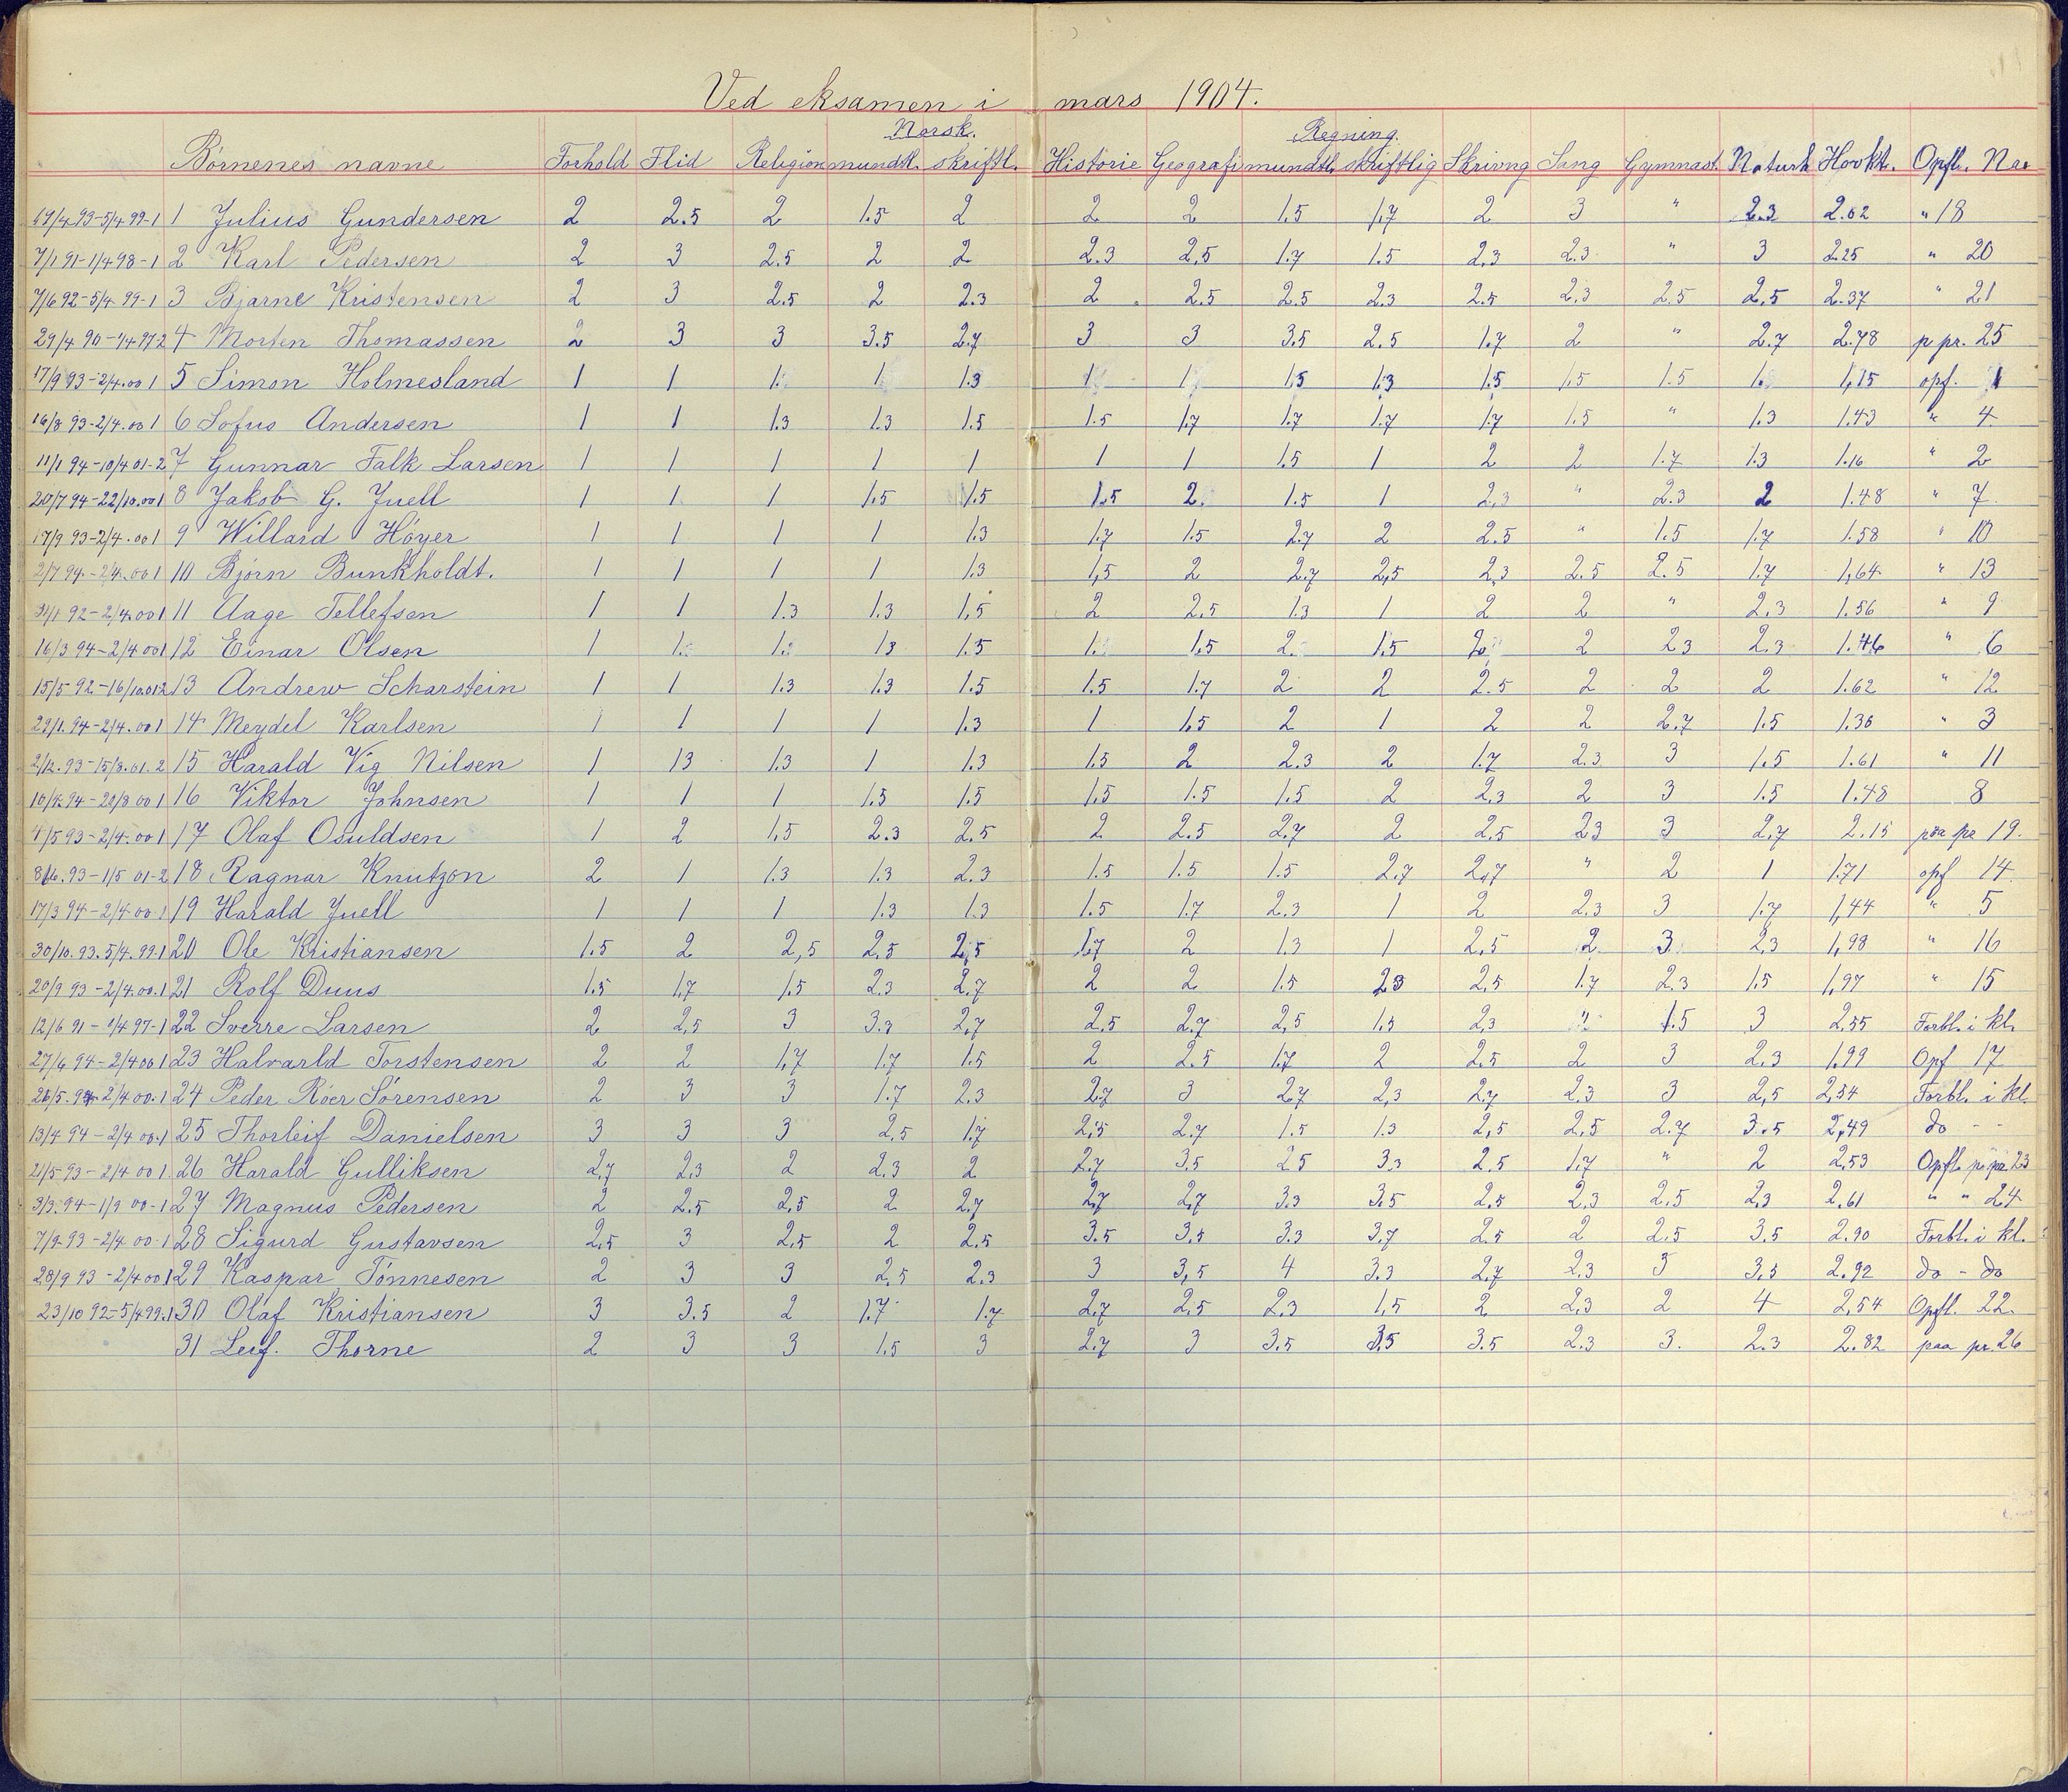 Ved eksamen i mars 1904.
Norsk. Regning.
Börnenes navne Forhold Flid Religion mundtl. skriftl. Historie Geografi mundtl. skriftlig Skrivng Sang Gymnast. Naturk Hovkt. Opfl. Nro
19/4 93-5/4 99-1 1 Julius Gundersen 2 2.5 2 1.5 2 2 2 1.5 1,7 2 3 " 2.3 2.02 " 18
7/1 91-1/4 98-1 2 Karl Pedersen 2 3 2.5 2 2 2.3 2,5 1.7 1.5 2,3 2.3 " 3 2.25 " 20
7/6 92-5/4 99-1 3 Bjarne Kristensen 2 3 2.5 2 2.3 2 2.5 2.5 2.3 2.5 2,3 2.5 2,5 2.37 " 21
29/4 90-1/4 97-2 4 Morten Thomassen 2 3 3 3.5 2.7 3 3 3.5 2.5 1.7 2 " 2.7 2.78 p pr. 25
17/9 93-2/4.00 1 5 Simon Holmesland 1 1 1. 1 1.3 1 1 1.5 1,3 1.5 1,5 1.5 1. 1,15 opf. 1
16/8 93-2/4.00 1 6 Sofus Andersen 1 1 1.3 1.3 1.5 1.5 1,7 1.7 1.7 1.7 1.5 " 1.3 1.43 " 4
11/1 94-10/4 01-2 7 Gunnar Falk Larsen 1 1 1 1 1 1 1 1.5 1 2 2 1.7 1.3 1.16 " 2
20/7 94-22/10.00 1 8 Jakob G. Juell 1 1 1 1.5 1.5 1.5 2. 1.5 1 2,3 " 2.3 2 1.48 " 7
17/9 93-2/4.00 1 9 Willard Höyer 1 1 1 1 1.3 1.7 1.5 2.7 2 2.5 " 1.5 1.7 1.58 " 10
2/7 94.-2/4.00 1 10 Björn Bunkholdt. 1 1 1 1 1.3 1,5 2 2.7 2,5 2,3 2.5 2.5 1.7 1,64 " 13
92-2/4.00 1 11 Aage Tellefsen 1 1 1.3 1.3 1,5 2 2.5 1.3 1 2 2 " 2.3 1.56 " 9
16/3 94-2/4 00 1 12 Einar Olsen 1 1. 1. 1.3 1.5 1. 1.5 2. 1.5 2. 2 2.3 2.3 1.46 " 6
15/5 92-16/10.01 2 13 Andrew Scharstein 1 1 1.3 1.3 1.5 1.5 1.7 2 2 2.5 2 2 2 1.62 " 12
29/1.94-2/4.00 1 14 Meydel Karlsen 1 1 1 1 1.3 1 1.5 2 1 2 2 2.7 1.5 1.36 " 3
2/12.93-15/3.01.2 15 Harald Vig Nilsen 1 1.3 1.3 1 1.3 1.5 2 2.3 2 1.7 2.3 3 1.5 1.61 " 11
10/4.94-20/8 00 1 16 Viktor Johnsen 1 1 1 1.5 1.5 1,5 1.5 1.5 2 2,3 2 3 1.5 1.48 8
4/5 93-2/4.00 1 17 Olaf Osuldsen 1 2 1,5 2.3 2.5 2 2.5 2.7 2 2,5 2.3 3 2.7 2,15 paa pr 19.
8/6.93-1/5 01-2 18 Ragnar Knutzon 2 1 1.3 1.3 2.3 1.5 1.5 1.5 2.7 2,7 " 2 1 1.71 opf 14
17/3 94-2/4 00.1 19 Harald Juell 1 1 1 1.3 1.3 1.5 1.7 2.3 1 2 2.3 3 1.7 1,44 " 5
30/10.93.5/4.99.1 20 Ole Kristiansen 1.5 2 2,5 2.5 2,5 1,7 2 1.3 1 2.5 2 3 2,3 1,98 " 16
20/9 93-2/4.00.1 21 Rolf Duus 1.5 1,7 1,5 2.3 2.7 2 2 1.5 2.3 2,5 1.7 2.3 1.5 1,97 " 15
12/6 91-1/4 97-1 22 Sverre Larsen 2 2,5 3 3.3 2,7 2,5 2.7 2,5 1.5 2,3 " 1.5 3 2,55 Forbl. i kl.
27/6 94-2/4 00 1 23 Halvarld Torstensen 2 2 1,7 1.7 1.5 2 2.5 1.7 2 2.5 2 3 2.3 1,99 Opf 17
26/5.94-2/4 00.1 24 Peder Röer Sörensen 2 3 3 1.7 2.3 2.7 3 2.7 2,3 2.7 2,3 3 2,5 2,54 Forbl. i kl.
13/4 94-2/4 00.1 25 Thorleif Danielsen 3 3 3 2.5 1.7 2,5 2.7 1.5 1.3 2,5 2,5 2.7 3.5 2,49 do - -
21/5 93-2/4 00 1. 26 Harald Gulliksen 2,7 2,3 2 2.3 2 2.7 3,5 2.5 3.3 2.5 1,7 " 2 2,53 Opfl. p. pr. 23
3/3.94-1/9 00-1 27 Magnus Pedersen 2 2.5 2,5 2 2.7 2,7 2,7 3.3 3.5 2.5 2,3 2.5 2,3 2.61 " " 24
7/9.93-2/4 00-1 28 Sigurd Gustavsen 2,5 3 2,5 2 2.5 3.5 3,5 3.3 3,7 2.5 2 2.5 3.5 2.90 Forbl. i kl.
28/9 93-2/4 00 1 29 Kaspar Tönnesen 2 3 3 2,5 2.3 3 3,5 4 3.3 2.7 2,3 3 3,5 2.92 do - do
23/10 92-5/4 99.1 30 Olaf Kristiansen 3 3.5 2 1.7 1.7 2,7 2,5 2,3 1,5 2 2,3 2 4 2,54 Opfl. 22.
31 Leif. Thorne 2 3 3 1.5 3 2.7 3 3.5 3,5 3.5 2.3 3. 2.3 2.82 paa pr. 26